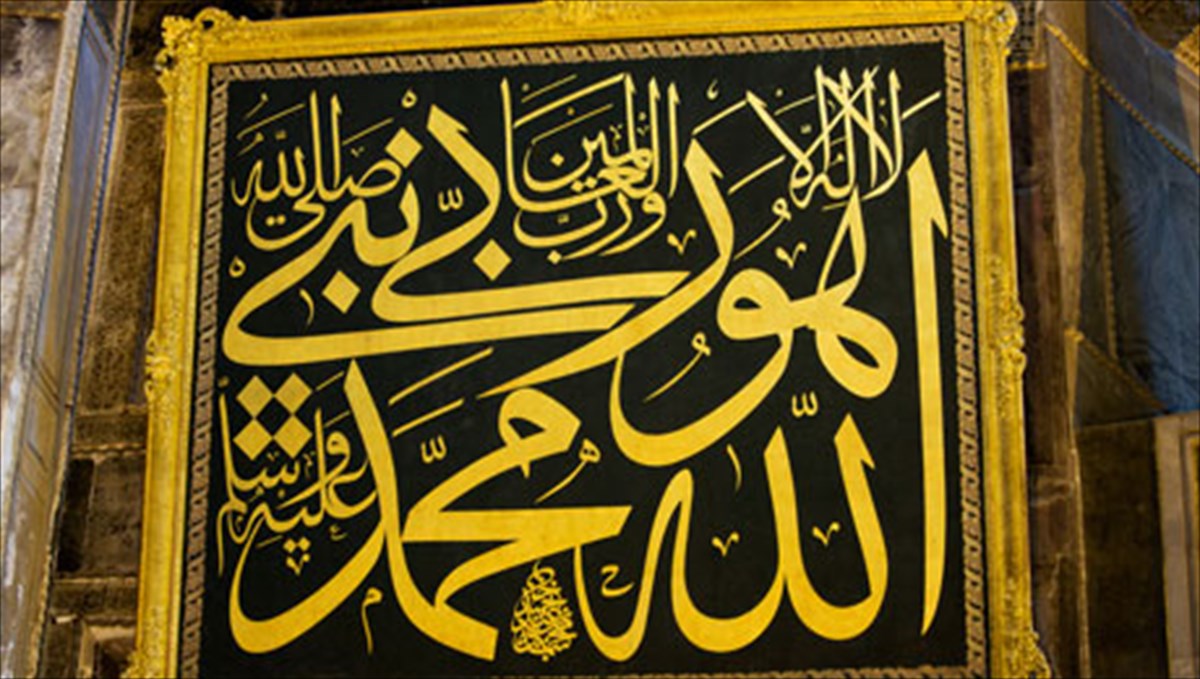 الله ربي
لا اله الا هو
ورب العالمين
محمد نبي
صلى الله
عليه وسلم